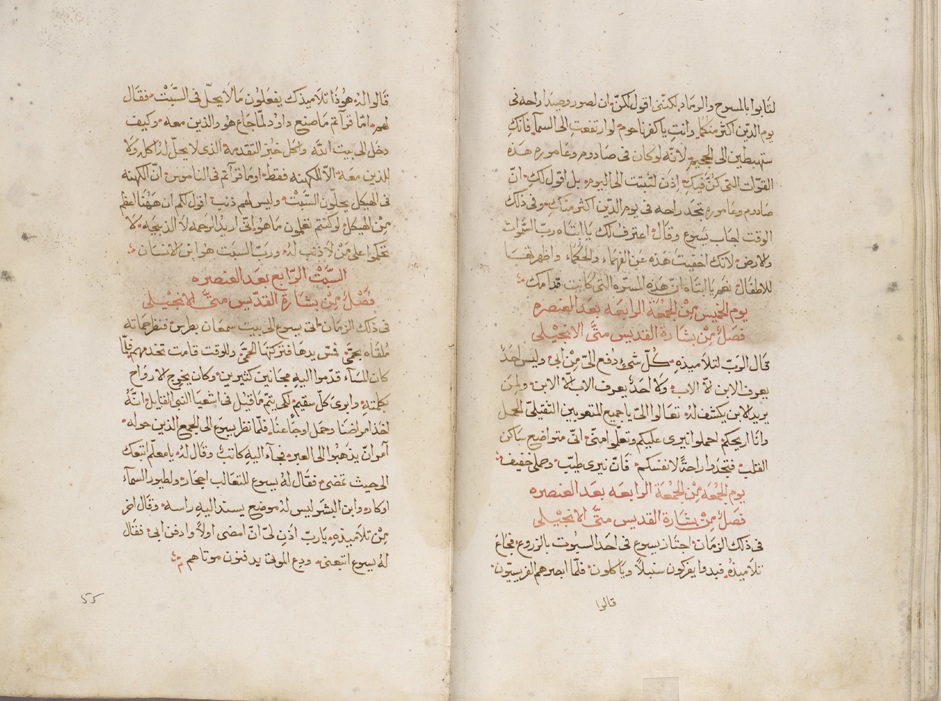 لتابوا بالمسوح والرماد لكنّني اقول لكنّ ان لصور وصيدا راحه في
يوم الدين اكثر منكما وانتِ يا كفرناحوم لو ارتفعتِ الى السمآ فانكِ
ستهبطين الى الجحيم لانه لو كان في صادوم وعاموره هذه
القوات التي كنّ فيكِ اذن لثبتت الى اليوم بل اقول لكِ انّ
صادوم وعاموره تجد راحه في يوم الدين اكثر منكِ وفي ذلك
الوقت اجاب يسوع وقال اعترف لك يا ابتاه ربّ السموات
والارض لانك اخفيت هذه عن الفهمآء والحكمآء واظهرتها
للاطفال نعم يا ابتاه ان هذه المسره التي كانت قدامك
يوم الخميس من الجمعة الرابعه بعد العنصره
فصل من بشارة القديس متّى الانجيلي
قال الربّ لتلاميذه كلّ شيء دفع اليّ من ابي وليس احدٌ
يعرف الابن الا الاب ولا احدٌ يعرف الاب الا الابن ولمن
يريد الابن يكشف له تعالوا اليّ يا جميع المتعوبين الثقيلي الحمل
وانا اريحكم احملوا نيري عليكم وتعلموا منّي انّي متواضع ساكن
القلب فتجدوا راحةً لانفسكم فان نيري طيّب وحملي خفيف
يوم الجمعه من الجمعة الرابعه بعد العنصره
فصل من بشارة القديس متّى الانجيلي
في ذلك الزمان اجتاز يسوع في احد السبوت بالزروع فجاع
تلاميذه فبدوا يفركون سنبلاً وياكلون فلمّا ابصرهم الفريسيّون
قالوا
قالوا له هوذا تلاميذك يفعلون ما لا يحلّ في السّبت فقال
لهم اما قراتم ما صنع داود لمّا جاع هو والذين معه وكيف
دخل الى بيت الله واكل خبز التقدمه الذي لا يحلّ له اكله ولا
للذين معه الا للكهنه فقط اوما قراتم في الناموس انّ الكهنه
في الهيكل يحلّون السّبت وليس لهم ذنب اقول لكم ان ههنا اعظم
من الهيكل لو كنتم تعلمون ما هو انّي اريد الرحمه لا الذبيحه لا
تحكموا على من لا ذنب له وربّ السبت هو ابن الانسان
السّبت الرّابع بعد العنصره
فصل من بشارة القدّيس متّى الانجيلي
في ذلك الزمان اتى يسوع الى بيت سمعان بطرس فنظر حماته
ملقاه بحمّى فمسّ يدها فتركتها الحمّى وللوقت قامت تخدمهم فلمّا
كان المسآء قدّموا اليه مجانين كثيرين وكان يخرج الارواح
بكلمته وابرى كلّ سقيم لكي يتمّ ما قيل في اشعيا النبي القايل انّه
اخذ امراضنا وحمل اوجاعنا فلمّا نظر يسوع الى الجمع الذين حوله
امر ان يذهبوا الى العبر فجآء اليه كاتبٌ وقال له يا معلم اتبعك
الى حيث تمضي فقال له يسوع للثعالب اجحار ولطيور السمآء
اوكار وابن البشر ليس له موضع يسند اليه راسه وقال اخر
من تلاميذه يا ربّ اذن لي انّ امضي اولاً وادفن ابي فقال
له يسوع اتبعني ودع الموتى يدفنون موتاهم
55